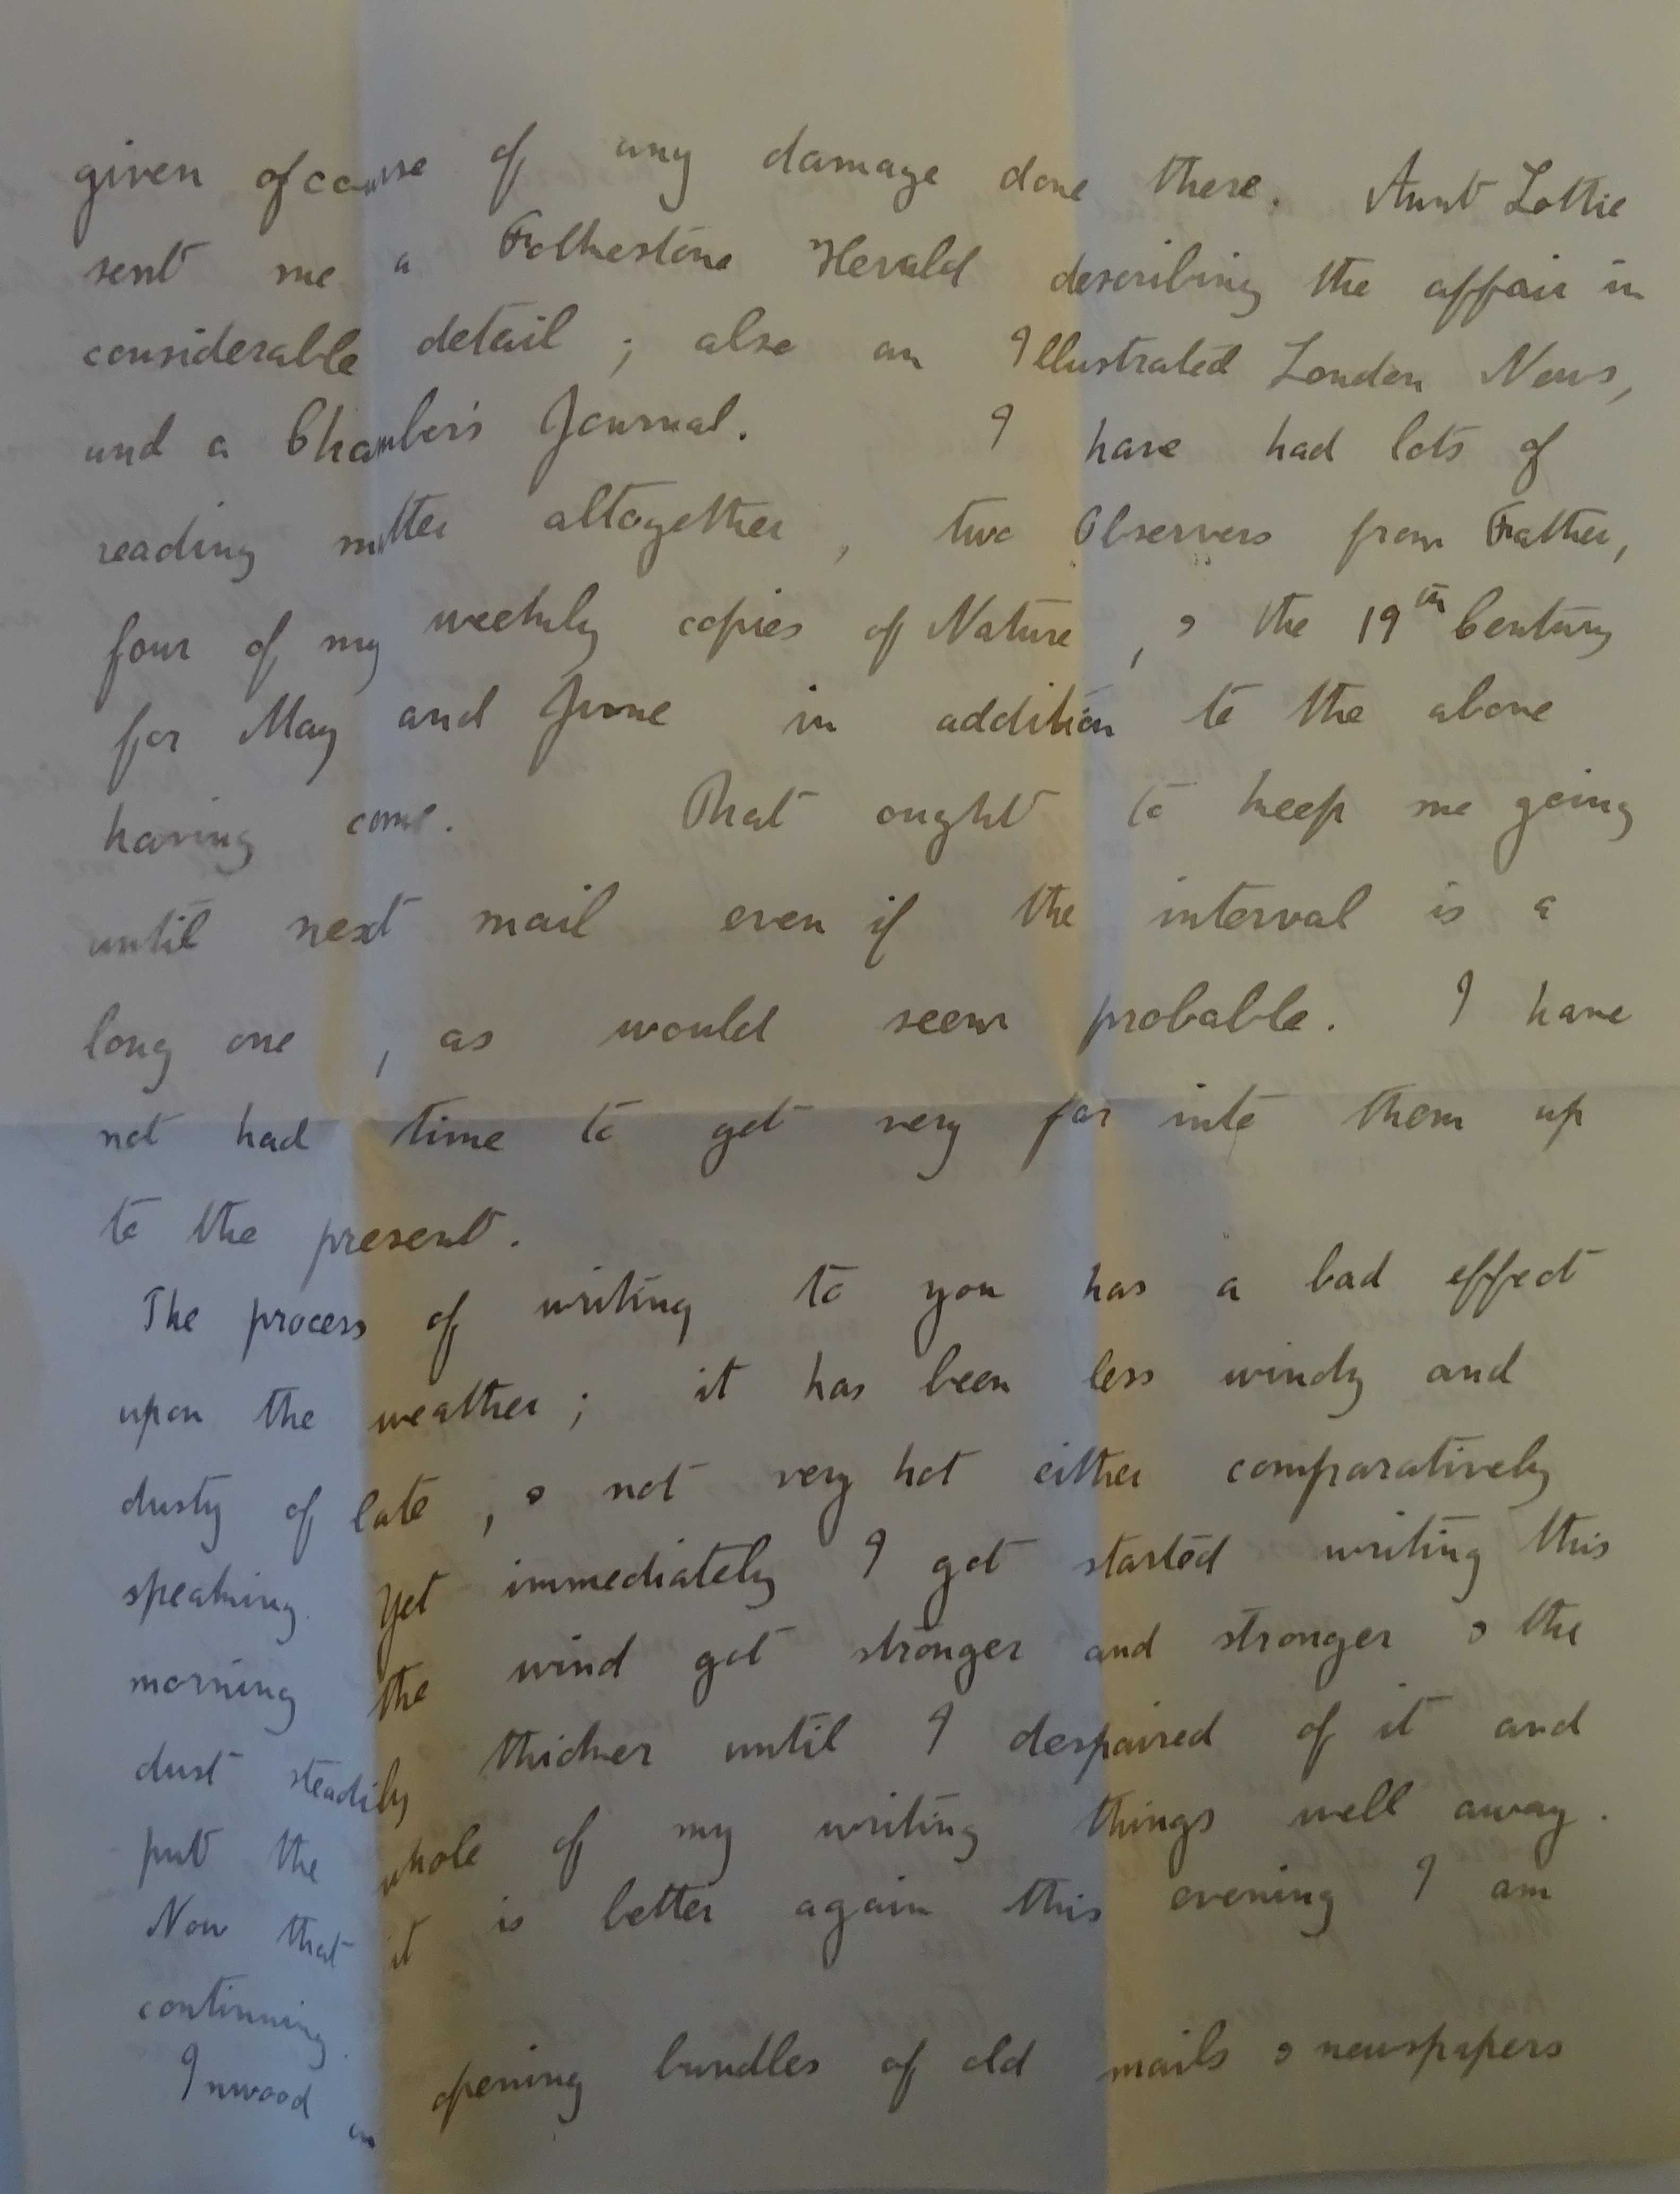 given of course of any damage done there. Aunt Lottie
sent me a Folkestone Herald describing the affair in
considerable detail ; also an Illustrated London News,
and a Chamber's Journal. I have had lots of
reading matter altogether , two Observers from Father,
four of my weekly copies of Nature , & the 19th Century
for May and June in addition to the above
having come. That ought to keep me going
until next mail even if the interval is a
long one , as would seem probable. I have
not had time to get very far into them up
to the present.
The process of writing to you has a bad effect
upon the weather ; it has been less windy and
dusty of late , & not very hot either comparatively
speaking. Yet immediately I got started writing this
morning the wind got stronger and stronger & the
dust steadily thicker until I despaired of it and
put the whole of my writing things well away .
Now that it is better again this evening I am
continuing.
Inwood in opening bundles of old mails & newspapers